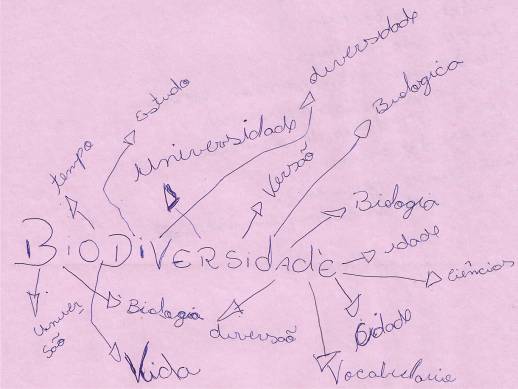 diversidade
Biologica
Estudo
Universidade
tempo
Versão
Biologia
BioDIVERSidade
idade
Ciências
Univer
são
Biologia
diversão
Cidade
Vida
Vocabulario